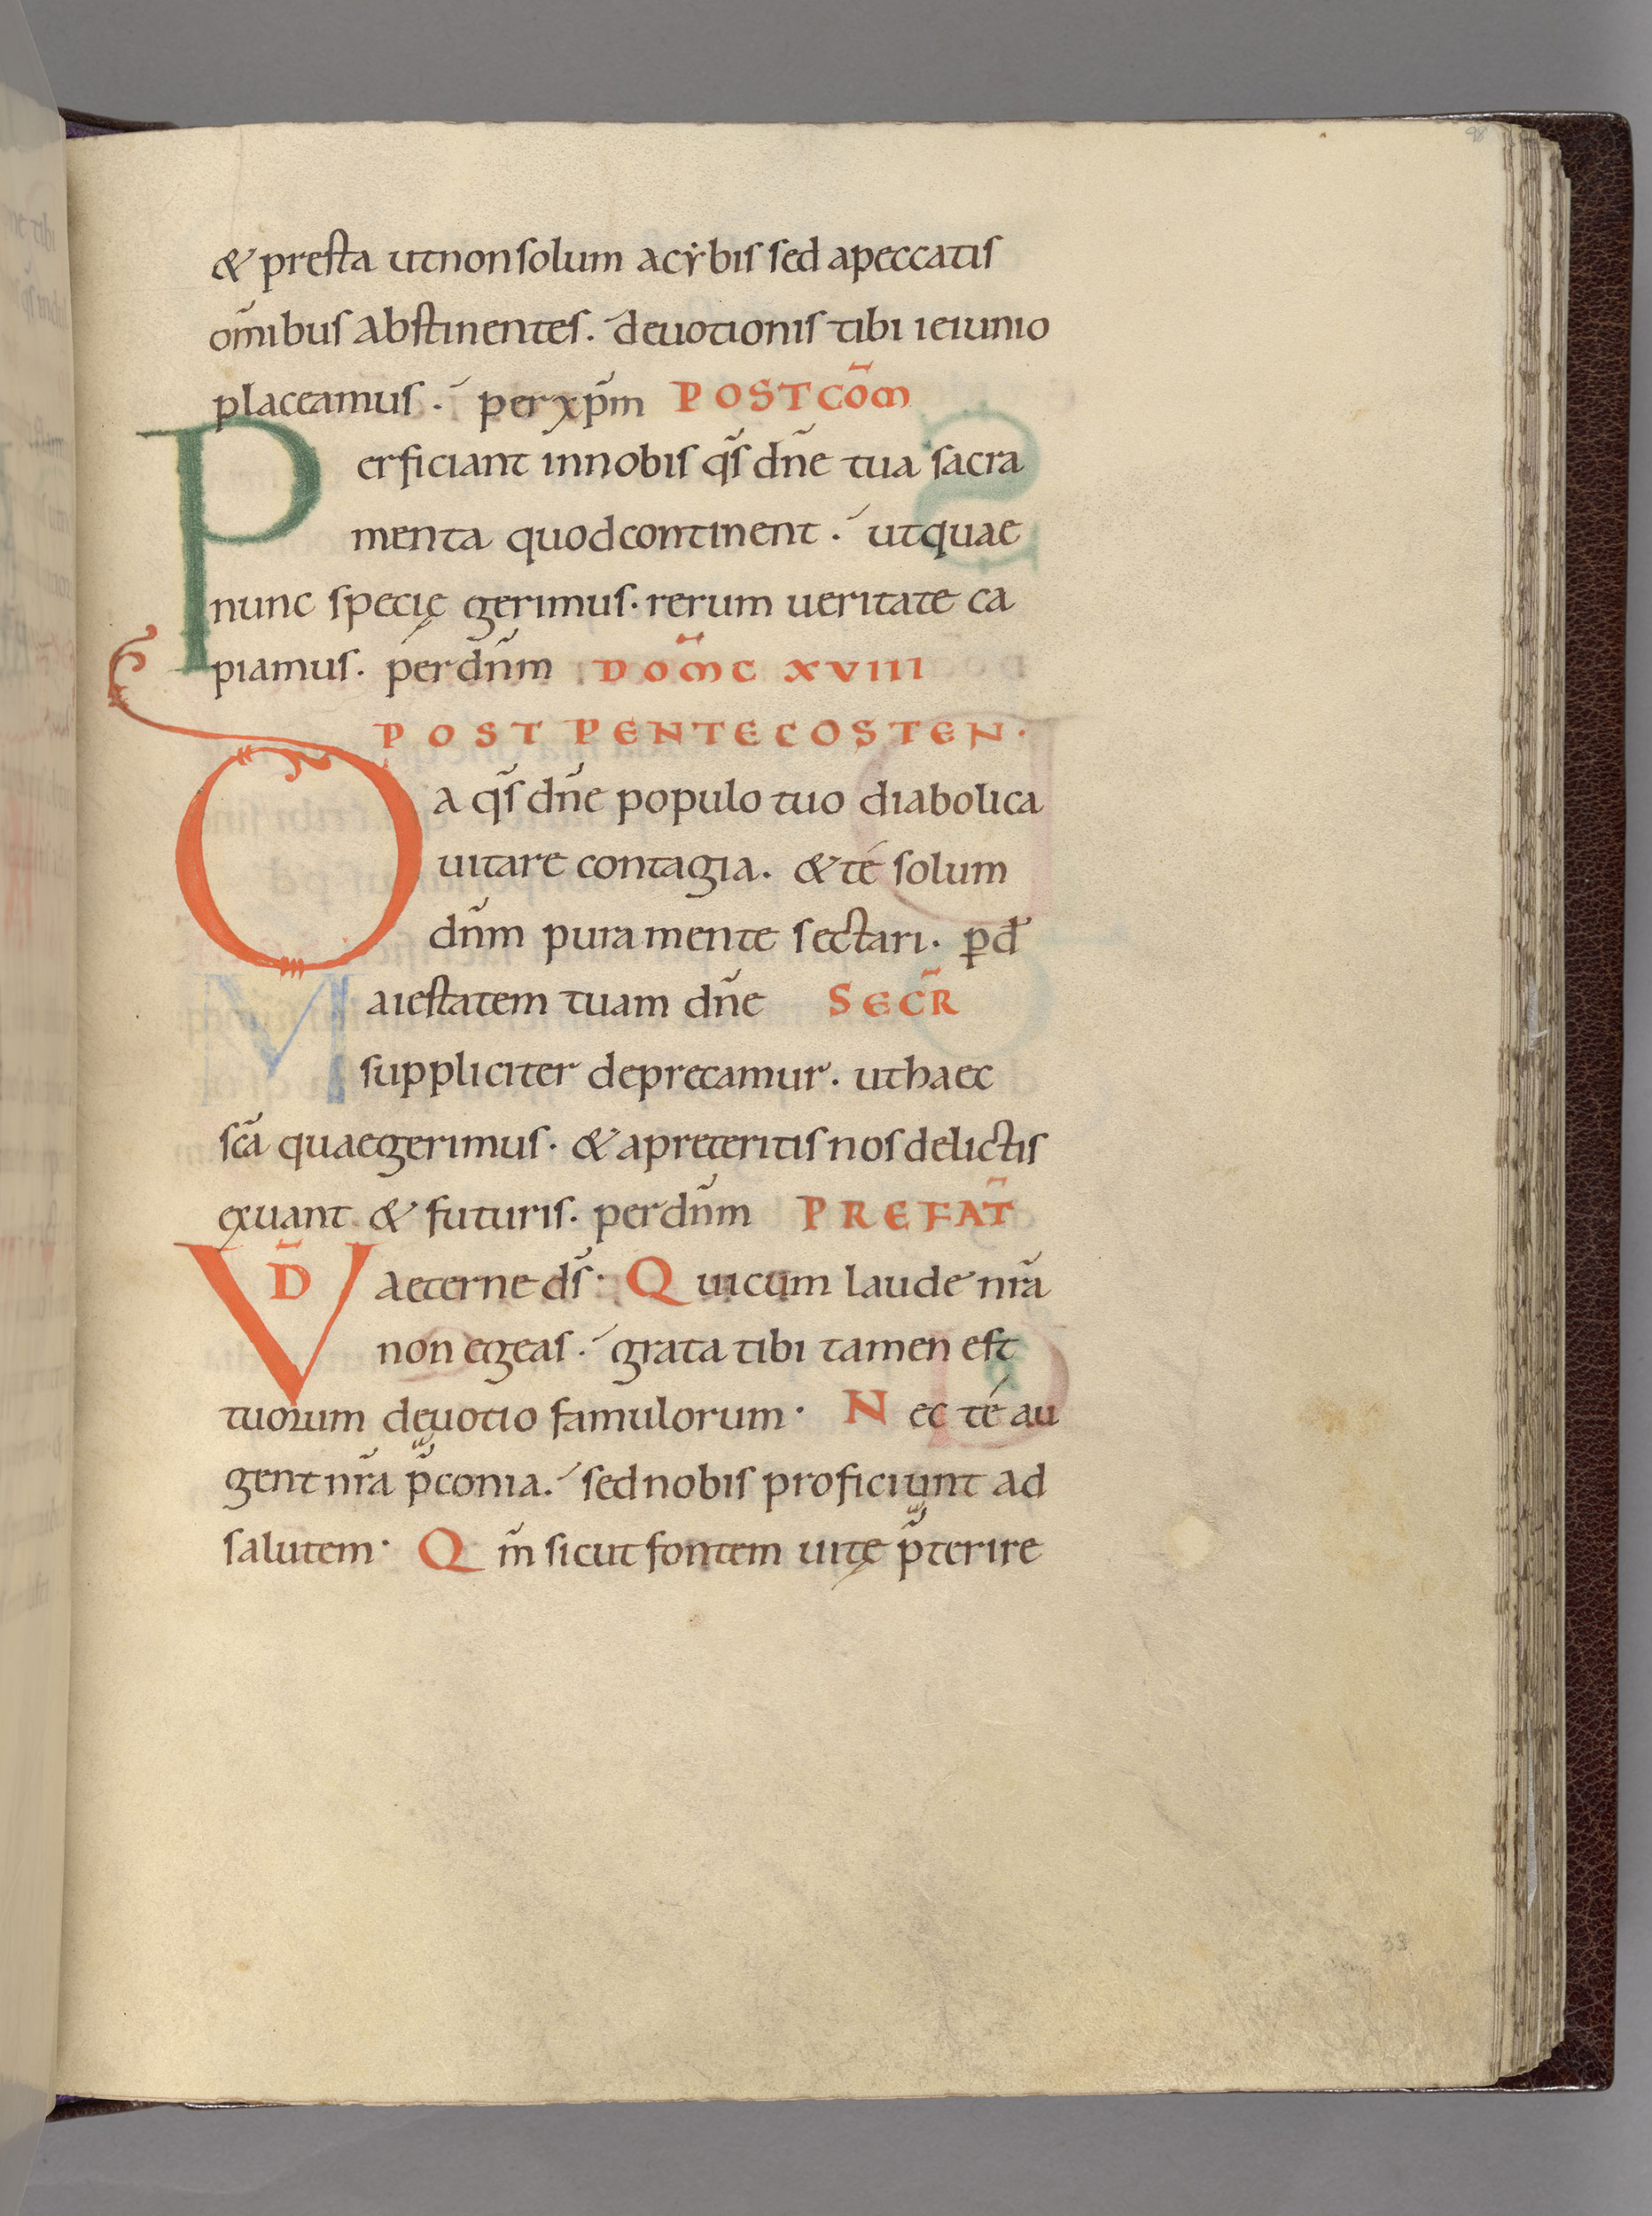 98
& presta utnonsolum acẏbis sed apeccatis
om̄ibus abstinentes. deuotionis tibi ieiunio
placeamus. perxp̄m POSTCOM̄
Perficiant innobis q̄s dn̄e tua sacra
menta quodcontinent. utquae
nunc specię gerimus. rerum ueritate ca
piamus. perdn̄m DOM̄C XVIIII
POST PENTECOSTEN.
Da q̄s dn̄e populo tuo diabolica
uitare contagia. & té solum
dn̄m pura mente sectari. p̱ d̄
Maiestatem tuam dn̄e SECR̄
suppliciter deprecamur. uthaec
sc̄a quaegerimus. & apreteritis nos delictis
exuant & futuris. perdn̄m PREFAT̄
VD̄ aeterne ds̄. Quicum laude nr̄a
non egeas. grata tibi tamen est
tuorum deuotio famulorum. Nec té au
gent nr̄a p̄conia. sednobis proficiunt ad
salutem. Qm̄ sicut fontem uitę p̄terire
33